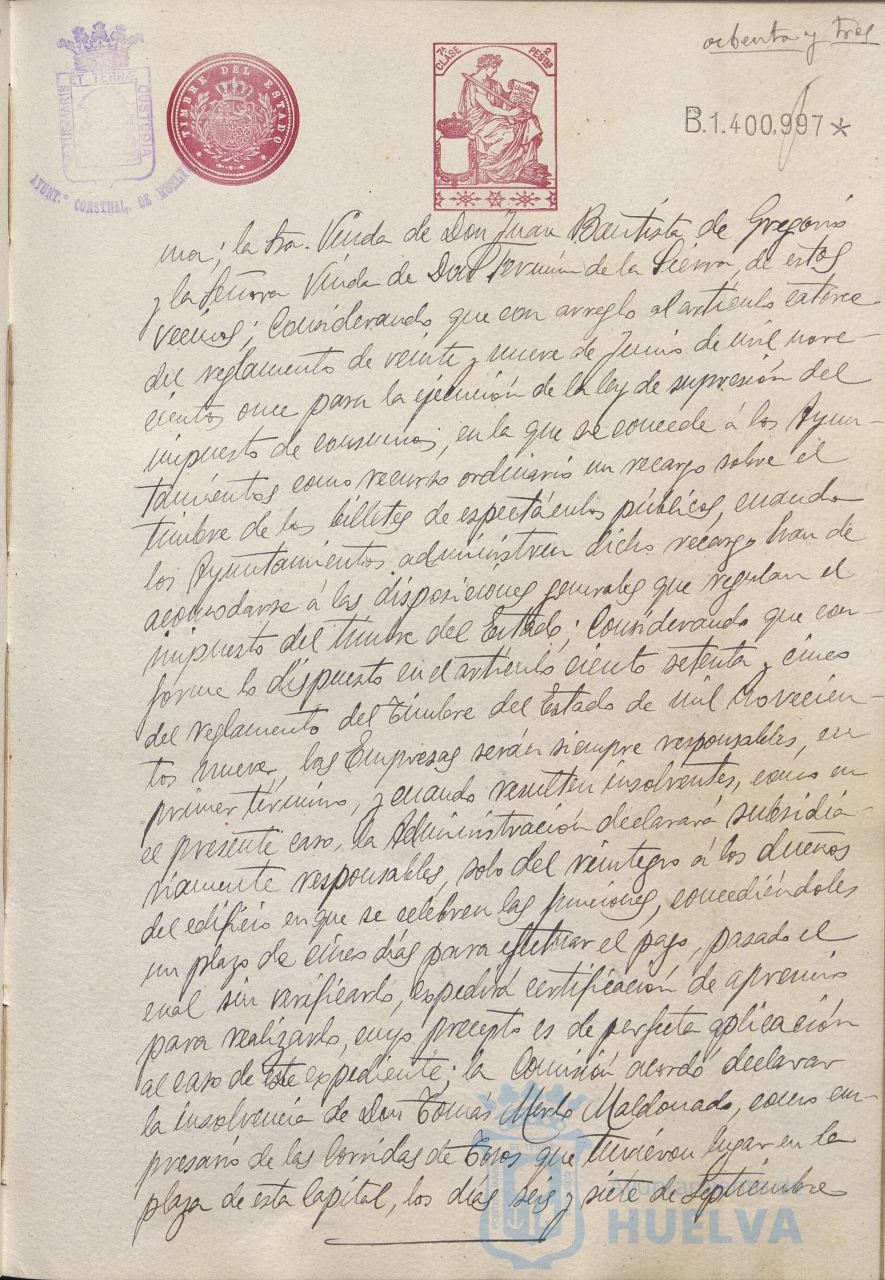 ochenta y tres
PORTUS MARIS ET TERRÆ CUSTODIA
AYUNT.º CONSTNAL. DE HUELVA
TIMBRE DEL ESTADO
7ª CLASE
2 PESETAS
B.1.400.997*
ma; la Sra. Viuda de Don Juan Bautista de Gregorio
y la Señora Viuda de Don Fermín de la Sierra, de estos
vecinos; Considerando que con arreglo al artículo catorce
del reglamento de veinte y nueve de Junio de mil nove-
cientos once para la ejecución de la ley de supresión del
impuesto de consumos, en la que se concede á los Ayun-
tamientos como recurso ordinario un recargo sobre el
timbre de los billetes de espectáculos públicos, cuando
los Ayuntamientos administren dicho recargo han de
acomodarse á las disposiciones generales que regulan el
impuesto del timbre del Estado; Considerando que con-
forme lo dispuesto en el artículo ciento setenta y cinco
del reglamento del Timbre del Estado de mil novecien-
tos nueve, las Empresas serán siempre responsables, en
primer término, y cuando resulten insolventes, como en
el presente caso, la Administración declarará subsidia-
riamente responsables, solo del reintegro á los dueños
del edificio en que se celebren las funciones, concediéndoles
un plazo de cinco días para efectuar el pago, pasado el
cual sin verificarlo, expedirá certificación de apremio
para realizarlo, cuyo precepto es de perfecta aplicación
al caso de este expediente; la Comisión acordó declarar
la insolvencia de Don Tomas Merlo Maldonado, como em-
presario de las Corridas de Toros que tuvieron lugar en la
plaza de esta Capital, los días seis y siete de Septiembre
Ayuntamiento de
HUELVA